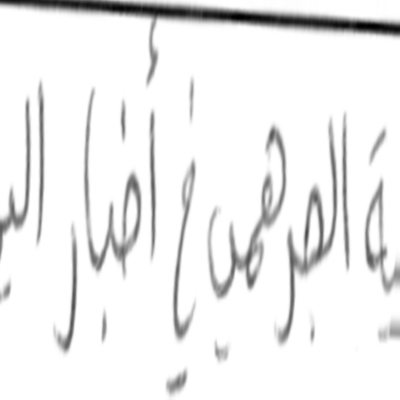 ية الجرهمي في أخبار الي